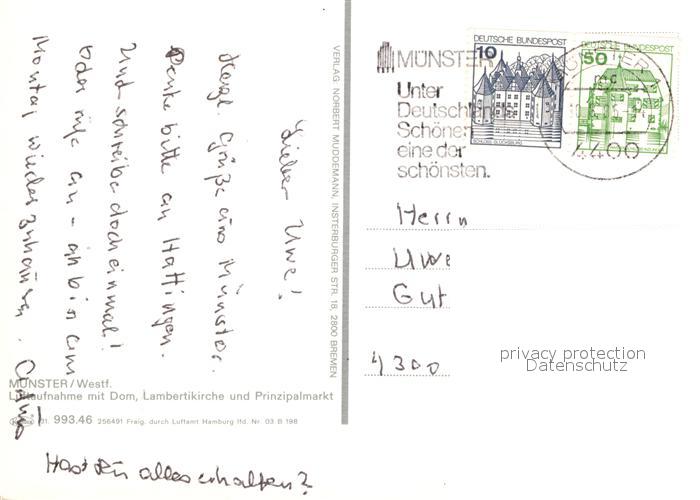 Lieber Uwe!
Herzl. Grüße aus Münster.
Denke bitte an Hattingen.
Und schreibe doch einmal!
Oder rufe an - ich bin am
Montag wieder zuhause.
Hast Du alles erhalten?
VERLAG NORBERT MUDDEMANN, INSTERBURGER STR. 18, 2800 BREMEN
MÜNSTER/Westf.
Luftaufnahme mit Dom, Lambertikirche und Prinzipalmarkt
31. 993.46 256491 Freig. durch Luftamt Hamburg lfd. Nr. 03 B 198
MÜNSTER
Unter
Deutschlands
Schönen
eine der
schönsten.
DEUTSCHE BUNDESPOST
10
SCHLOSS GLÜCKSBURG
DEUTSCHE BUNDESPOST
50
MÜNSTER
4400
Herrn
Uwe
Gut
4300
privacy protection
Datenschutz